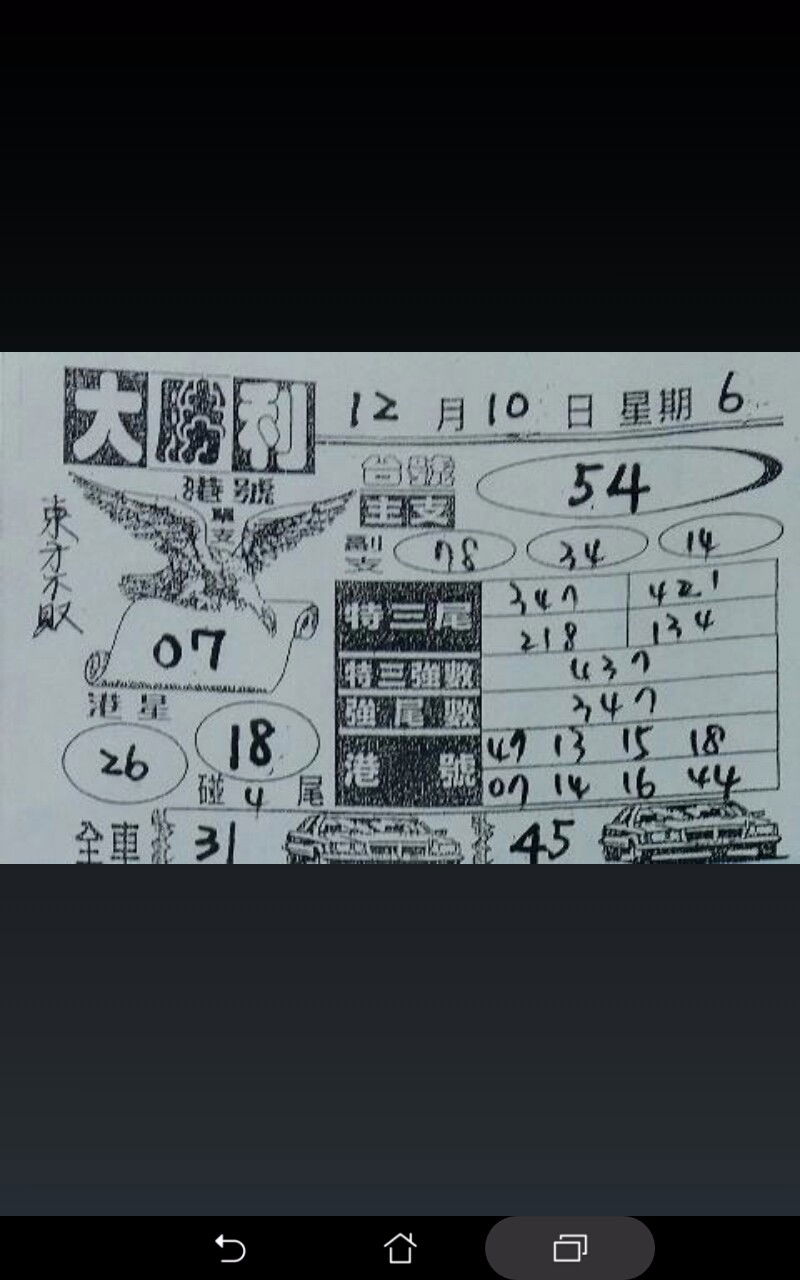 大勝利 12月10日星期6
港號
單支
東方不敗
07
港星
26 18
碰4尾
台號 54
主支
副支 78 34 14
特三尾 347 421
218 134
特三強數 437
強尾數 347
港號 47 13 15 18
07 14 16 44
全車 31 45